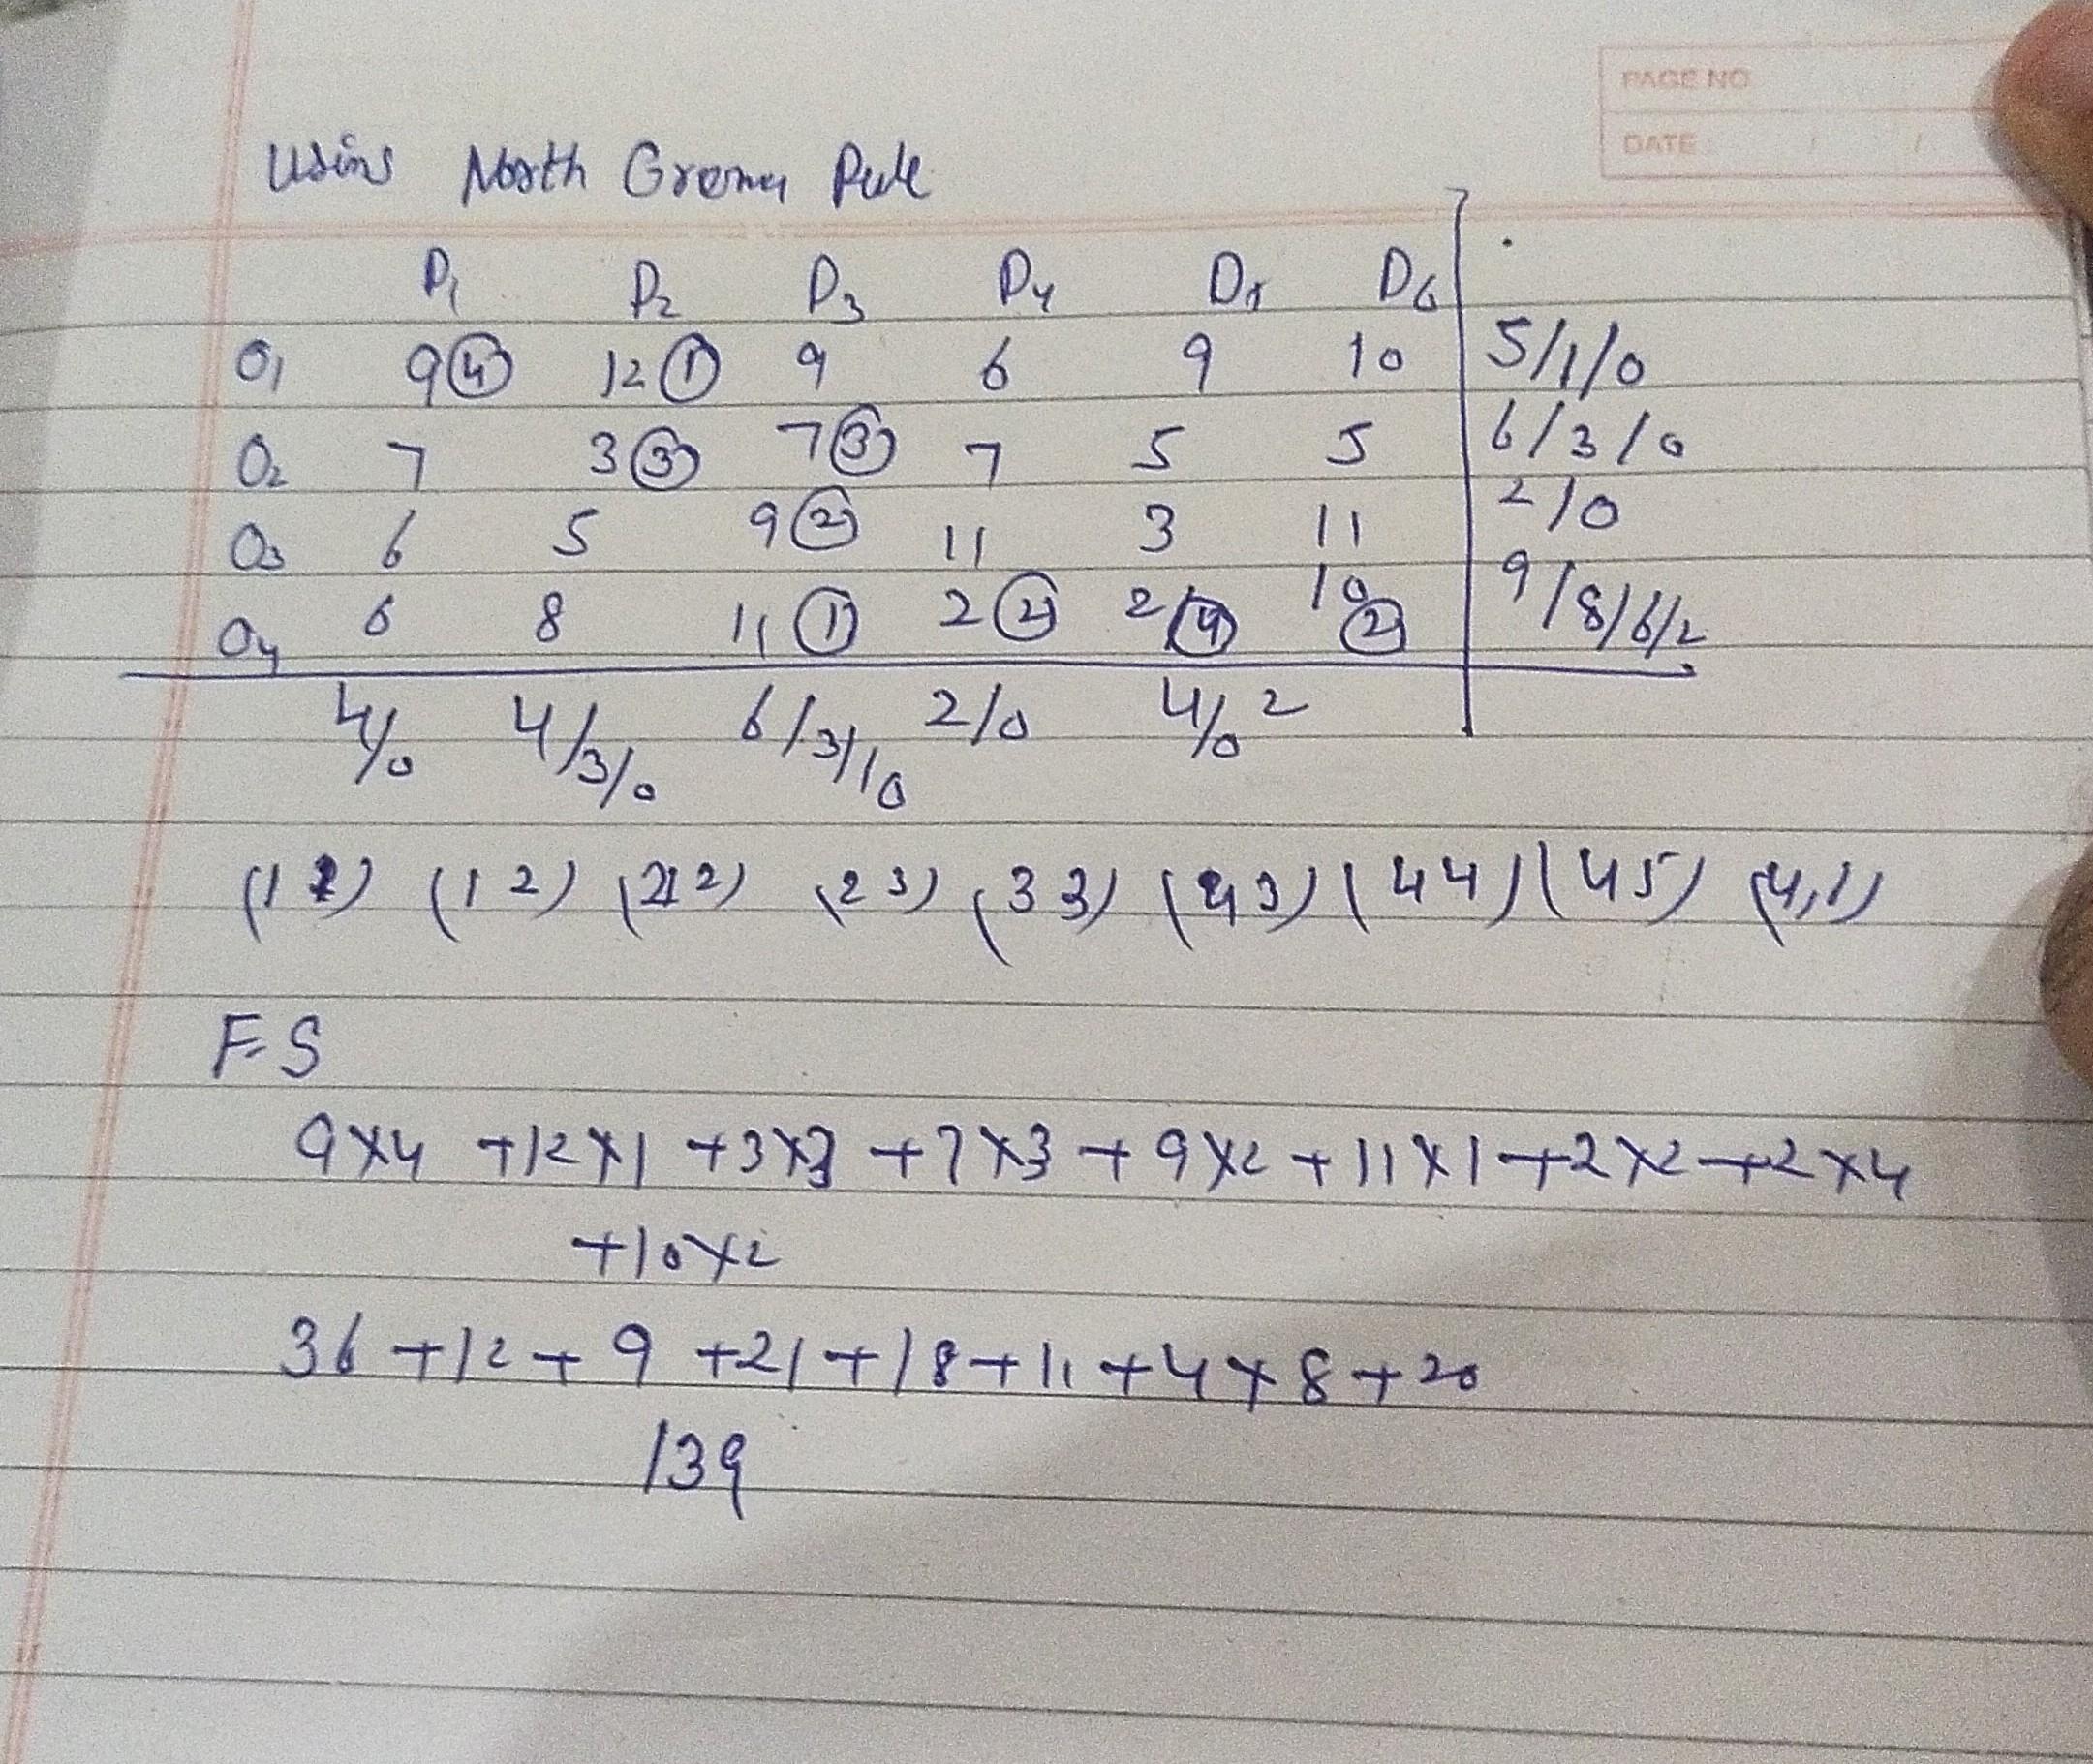 PAGE NO
DATE : / /
Using North Rule
D1 D2 D3 D4 D5 D6
O1 9 (4) 12 (1) 9 6 9 10 5/1/0
O2 7 3 (3) 7 (3) 7 5 5 6/3/0
O3 6 5 9 (2) 11 3 11 2/0
O4 6 8 11 (1) 2 (2) 2 (4) 10 (2) 9/8/6/2
4/0 4/3/0 6/3/1/0 2/0 4/0 2
(1 1) (1 2) (2 2) (2 3) (3 3) (4 3) (4 4) (4 5) (4,1)
F.S
9×4 +12×1 +3×3 +7×3 + 9×2 + 11×1 +2×2 +2×4
+10×2
36 +12 + 9 +21 + 18 + 11 + 4 + 8 + 20
139